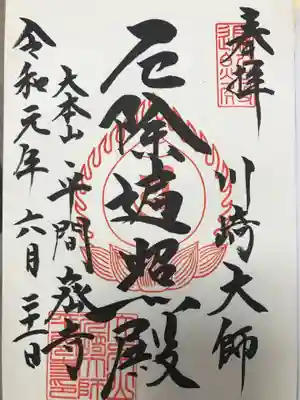 奉拝
川崎大師
厄除遍照殿
大本山 平間寺
令和元年 六月 日